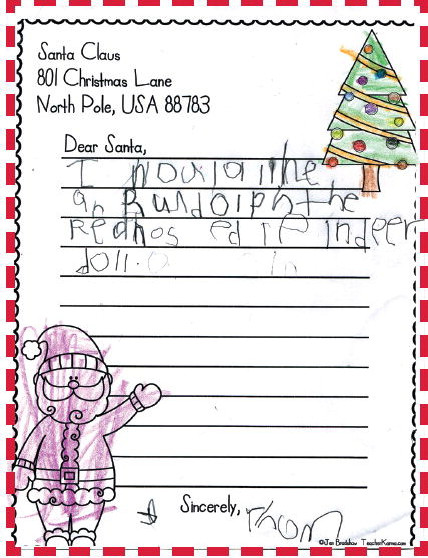 Santa Claus
801 Christmas Lane
North Pole, USA 88783
Dear Santa,
I would like
an Ruldolph the
Rednos ed re indeer
doll.
Sincerely, Thom
©Jen Bradshaw TeacherKarma.com